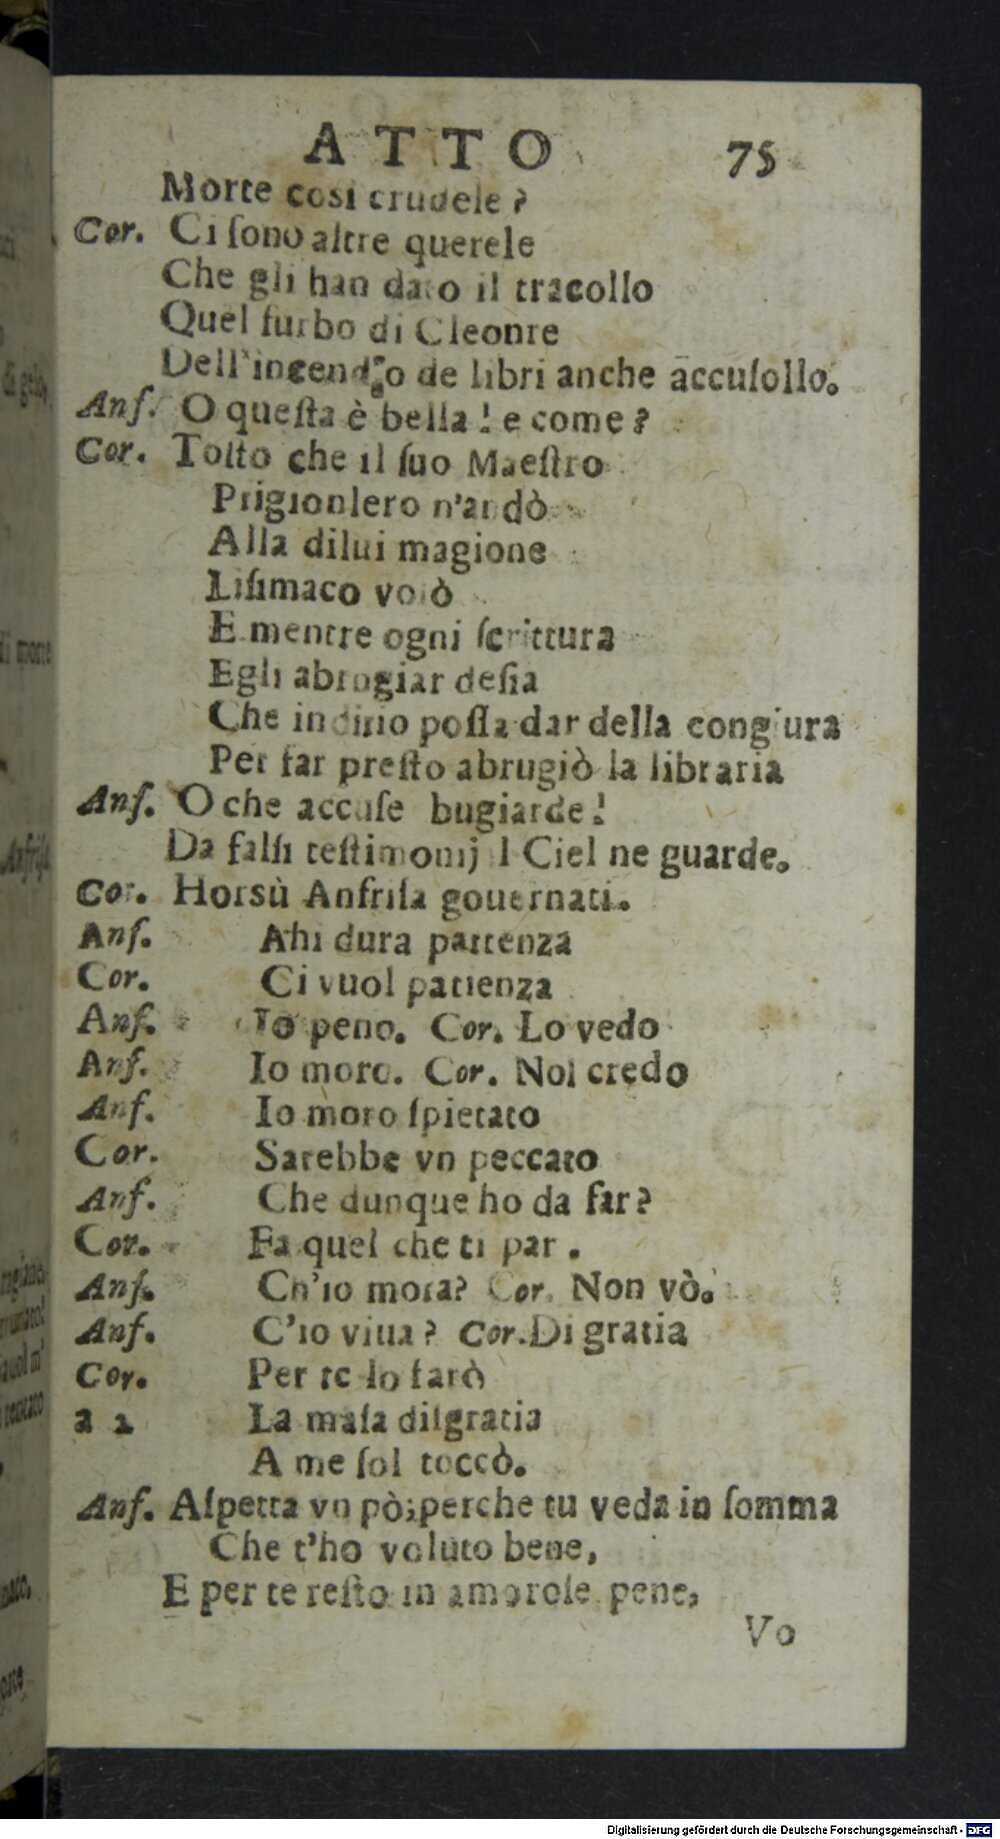 ATTO 75
Morte cosi crudele?
Cor. Ci ſono altre querele
Che gli han dato il tracollo
Quel furbo di Cleonte
Dell'incendio de libri anche accuſollo.
Anſ. O queſta è bella! e come?
Cor. Toſto che il ſuo Maeſtro
Prigionlero n'andò
Alla dilui magione
Liſimaco volò
E mentre ogni ſcrittura
Egli abrugiar deſia
Che inditio poſſa dar della congiura
Per far preſto abrugiò la libraria
Anſ. O che accuſe bugiarde!
Da falſi teſtimonij l Ciel ne guarde.
Cor. Horsù Anfriſa gouernati.
Anſ. Ahi dura partenza
Cor. Ci vuol patienza
Anſ. Io peno. Cor. Lo vedo
Anſ. Io moro. Cor. Nol credo
Anſ. Io moro ſpietato
Cor. Sarebbe vn peccato
Anſ. Che dunque ho da far?
Cor. Fa quel che ti par.
Anſ. Ch'io mora? Cor. Non vò.
Anſ. C'io viua? Cor. Di gratia
Cor. Per te lo farò
a 2 La maſa diſgratia
A me ſol toccò.
Anſ. Aſpetta vn pò; perche tu veda in ſomma
Che t'ho voluto bene,
E per te reſto in amoroſe pene,
Vo
Digitalisierung gefördert durch die Deutsche Forschungsgemeinschaft - DFG